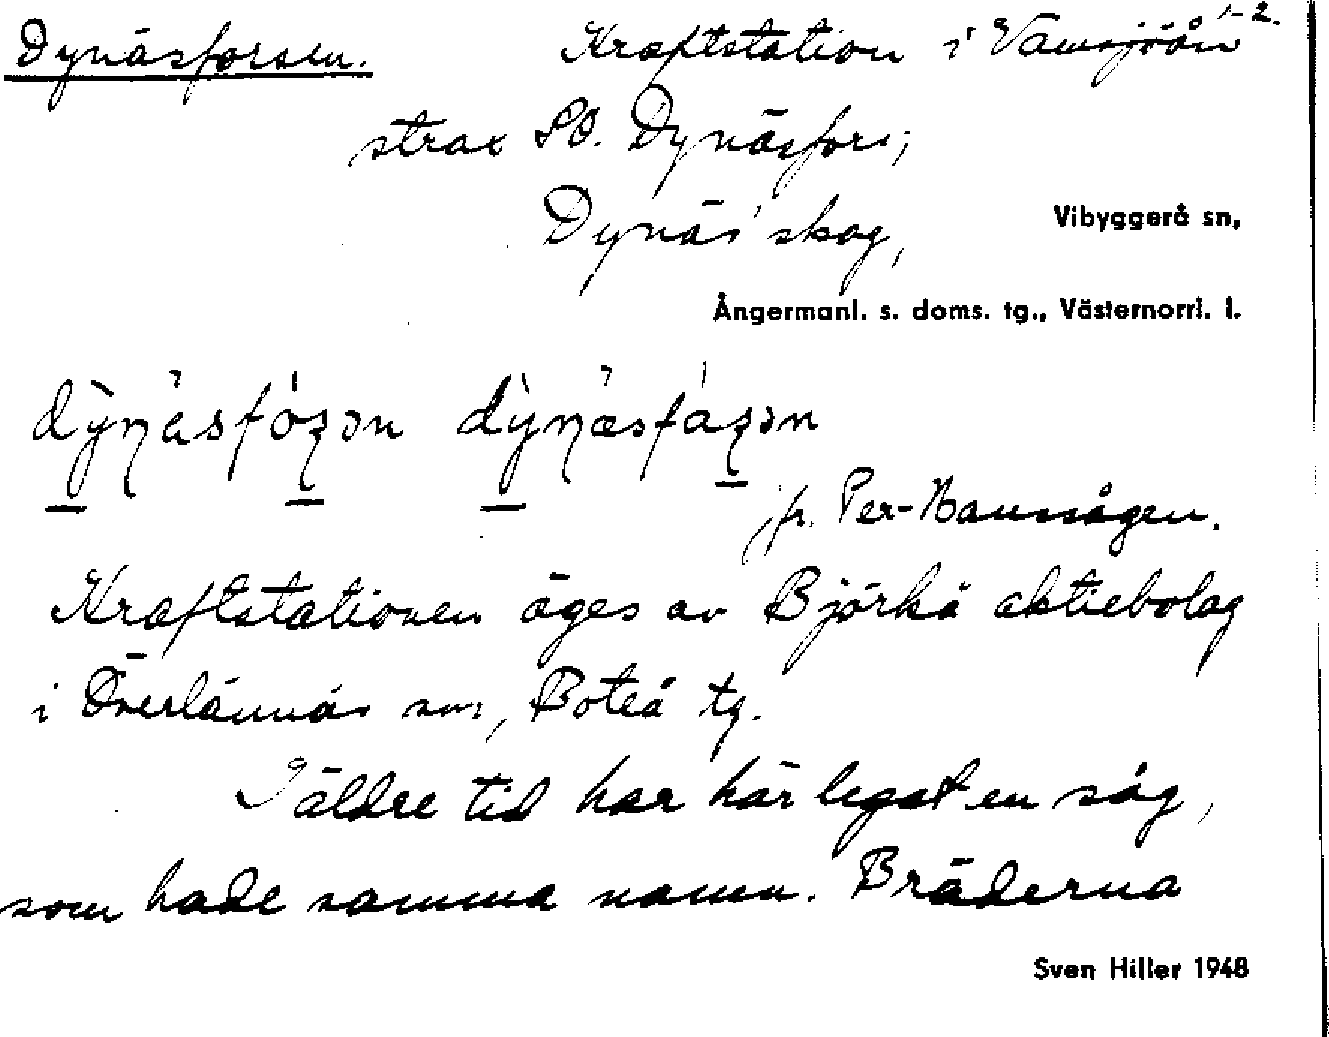 Dynäsforsen. Kraftstation i Vamsjöån 1-2.
strax SO. Dynäsfors;
Dynäs skog, Vibyggerå sn,
Ångermanl. s. doms. tg., Västernorrl. l.
jfr. Per-Hanssågen.
Kraftstationen äges av Björkå aktiebolag
i Överlännäs sn, Boteå tg.
I äldre tid har här legat en såg,
som hade samma namn. Bräderna
Sven Hiller 1948